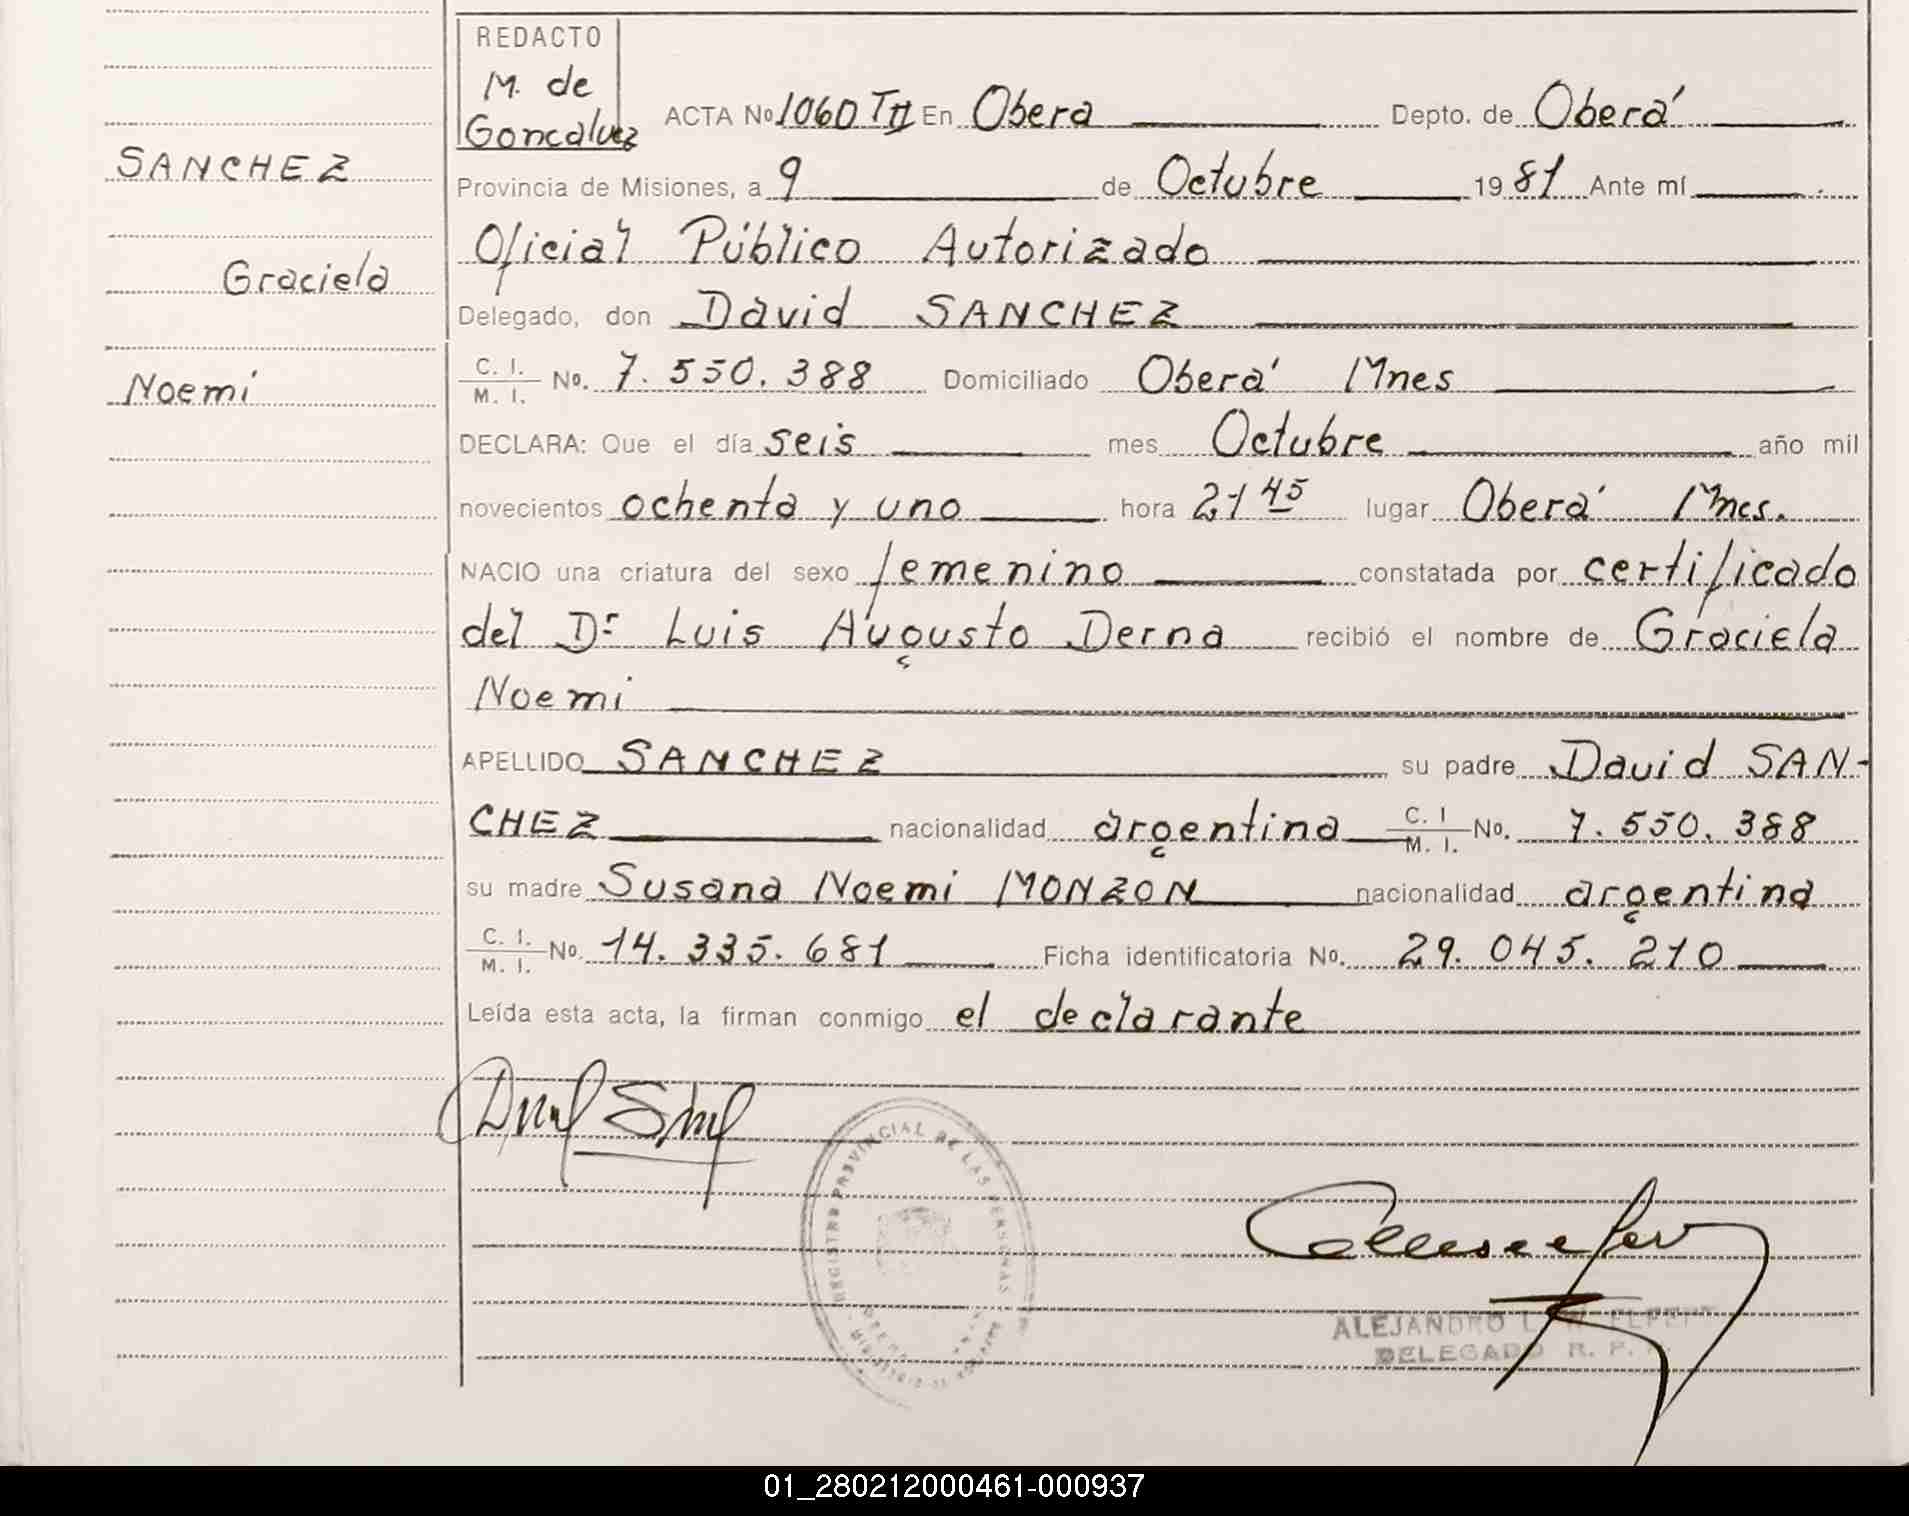 REDACTO
M. de
Goncalvez
ACTA No 1060 TII En Obera Depto. de Oberá
SANCHEZ
Provincia de Misiones, a 9 de Octubre 1981 Ante mí
Oficial Público Autorizado
Graciela
Delegado, don David SANCHEZ
Noemi
C. I.
M. I. No. 7.550.388 Domiciliado Oberá Mnes
DECLARA: Que el día seis mes Octubre año mil
novecientos ochenta y uno hora 21 45 lugar Oberá Mnes.
NACIO una criatura del sexo femenino constatada por certificado
del Dr Luis Augusto Derna recibió el nombre de Graciela
Noemi
APELLIDO SANCHEZ su padre David SAN-
CHEZ nacionalidad argentina C. I M. I. No. 7.550.388
su madre Susana Noemi MONZON nacionalidad argentina
C. I. M. I. No. 14.335.681 Ficha identificatoria No. 29.045.210
Leída esta acta, la firman conmigo el declarante
REGISTRO PROVINCIAL DE LAS PERSONAS
ALEJANDRO
DELEGADO R. P.
01_280212000461-000937